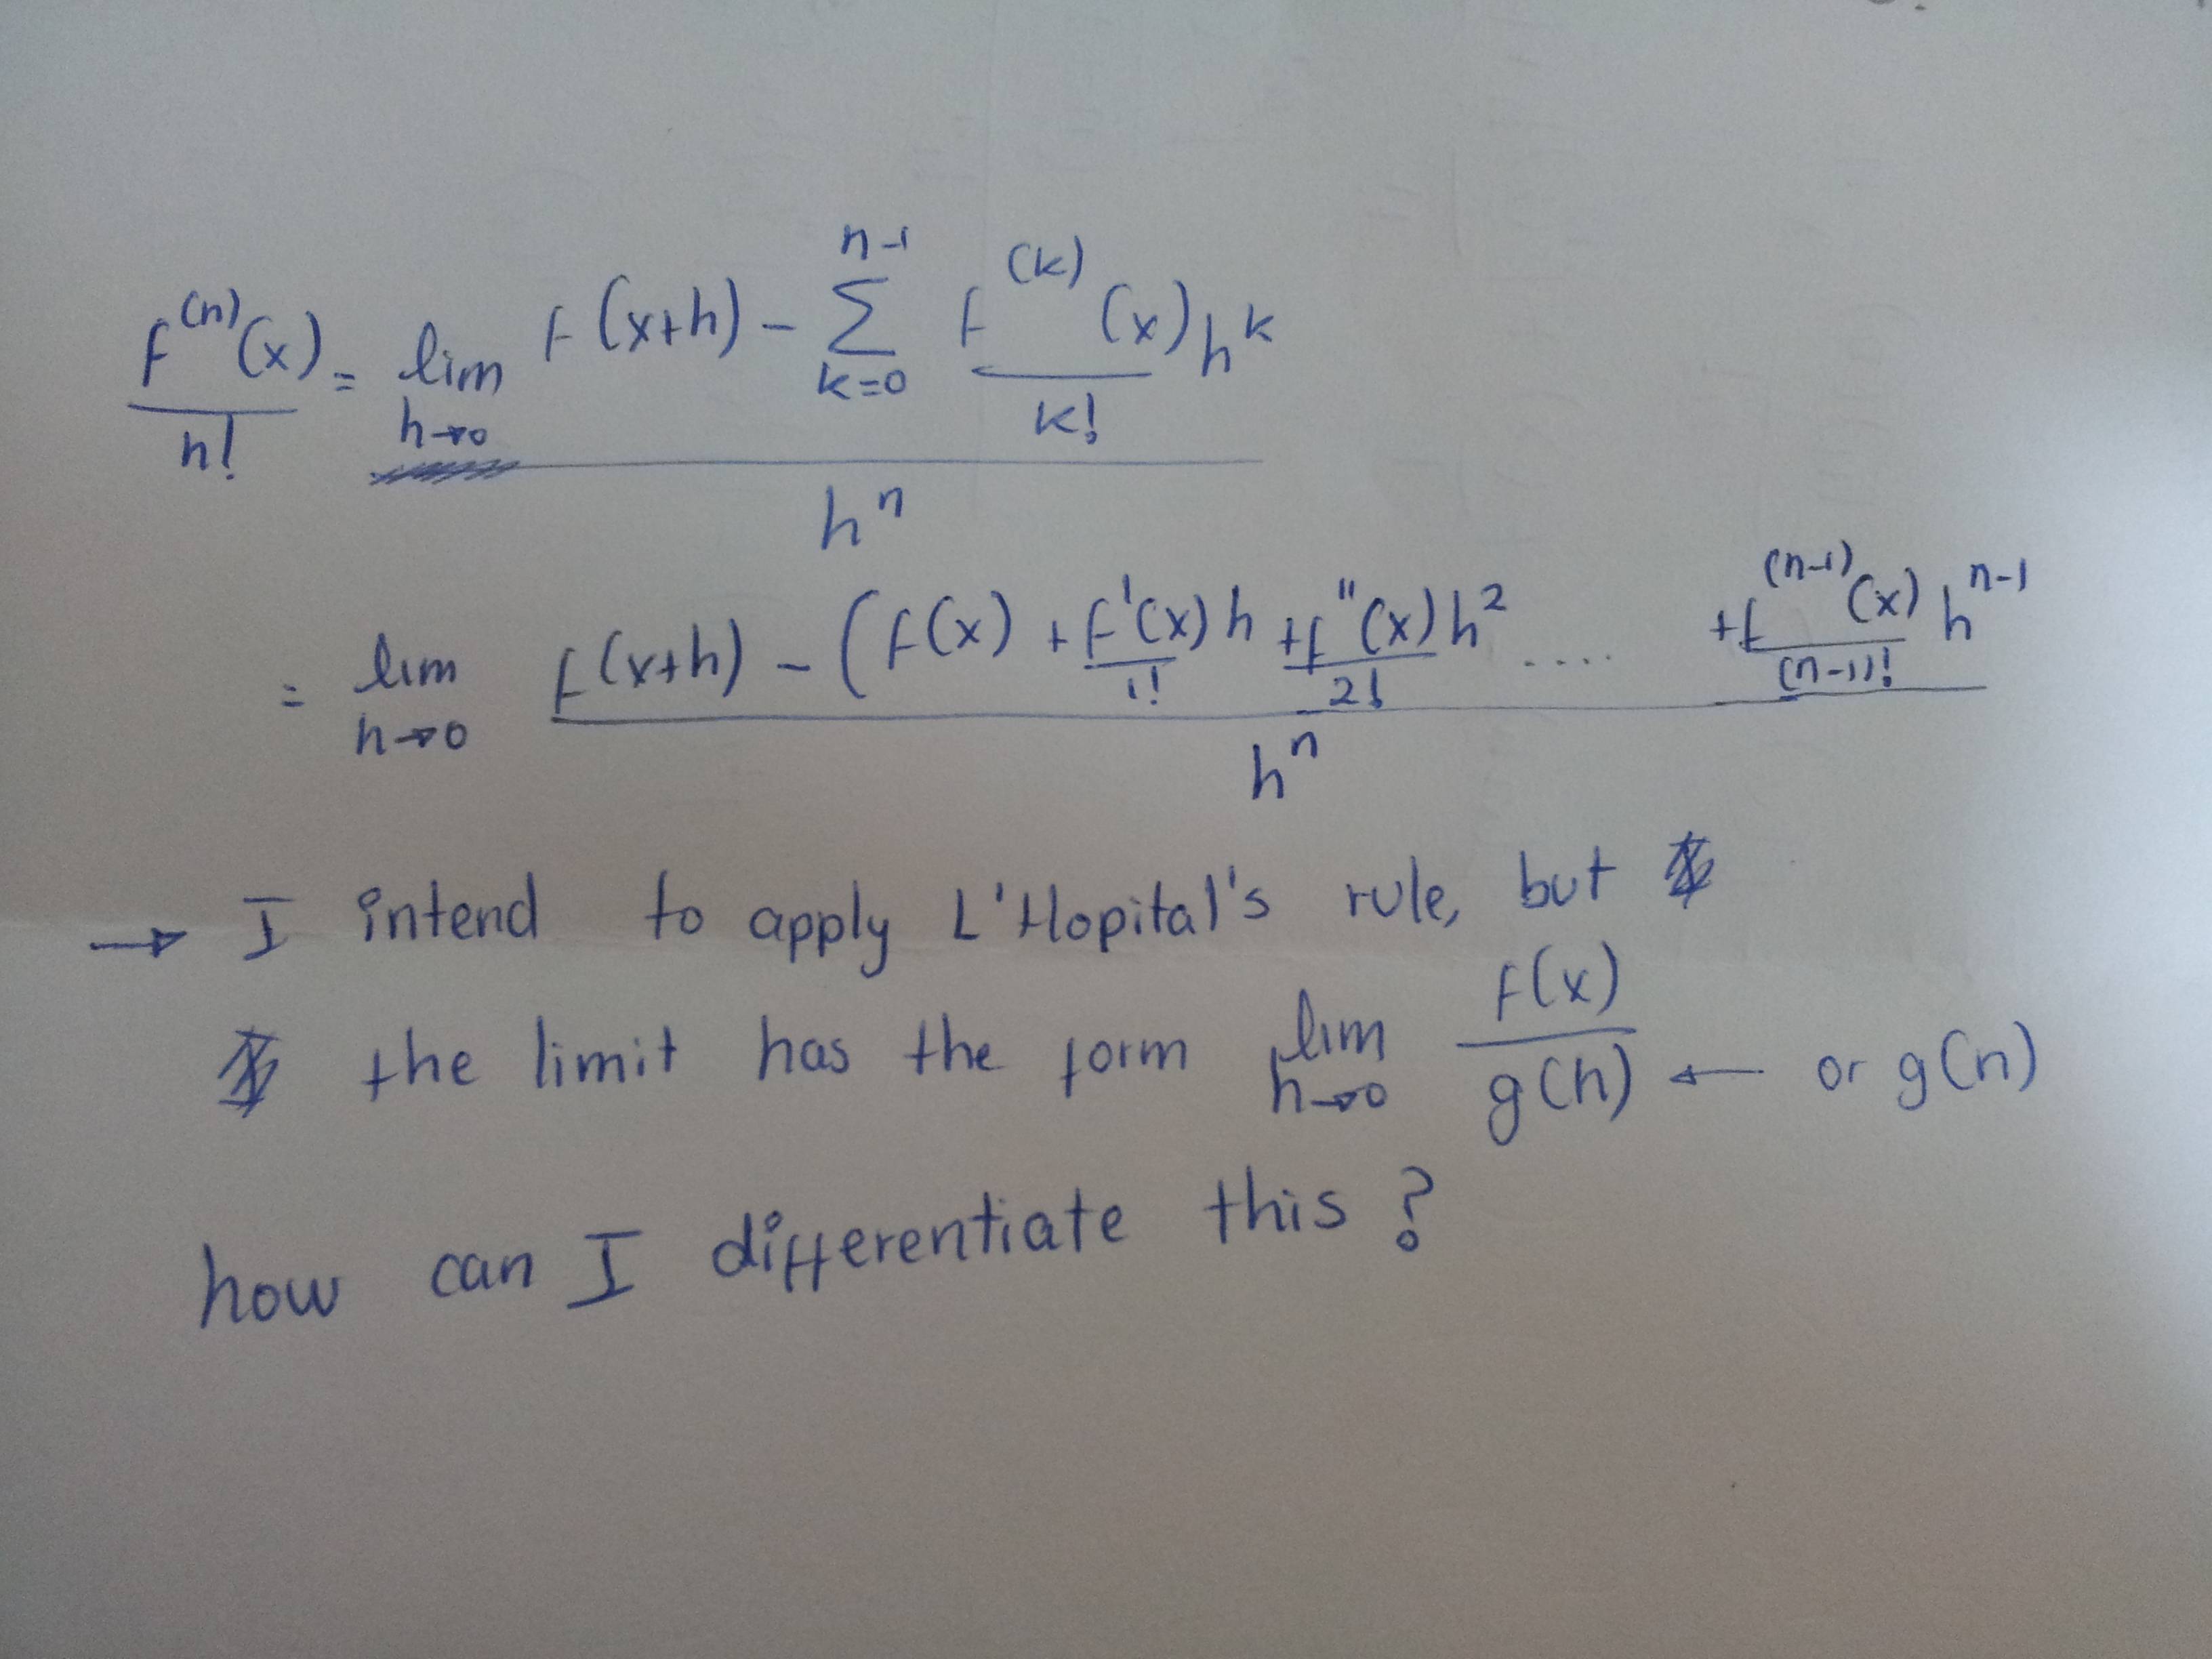 f^(n)(x)/n! = lim h→0 (f(x+h) - Σ k=0 n-1 f^(k)(x)/k! h^k) / h^n
= lim h→0 (f(x+h) - (f(x) + f'(x)/1! h + f''(x)/2! h^2 ..... + f^(n-1)(x)/(n-1)! h^n-1) / h^n
→ I intend to apply L'Hopital's rule, but
the limit has the form lim h→0 f(x)/g(h) ← or g(n)
how can I differentiate this?